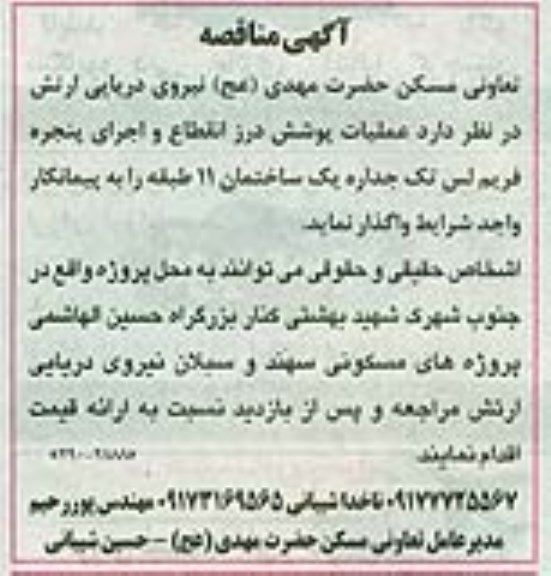 آگهی مناقصه
تعاونی مسکن حضرت مهدی (عج) نیروی دریایی ارتش
در نظر دارد عملیات پوشش درز انقطاع و اجرای پنجره
فریم لس تک جداره یک ساختمان ۱۱ طبقه را به پیمانکار
واجد شرایط واگذار نماید.
اشخاص حقیقی و حقوقی می توانند به محل پروژه واقع در
جنوب شهرک شهید بهشتی کنار بزرگراه حسین الهاشمی
پروژه های مسکونی سهند و سبلان نیروی دریایی
ارتش مراجعه و پس از بازدید نسبت به ارائه قیمت
اقدام نمایند.
ناخدا شیبانی ۰۹۱۷۳۱۶۹۵۶۵ مهندس پوررحیم
مدیرعامل تعاونی مسکن حضرت مهدی (عج) – حسین شیبانی